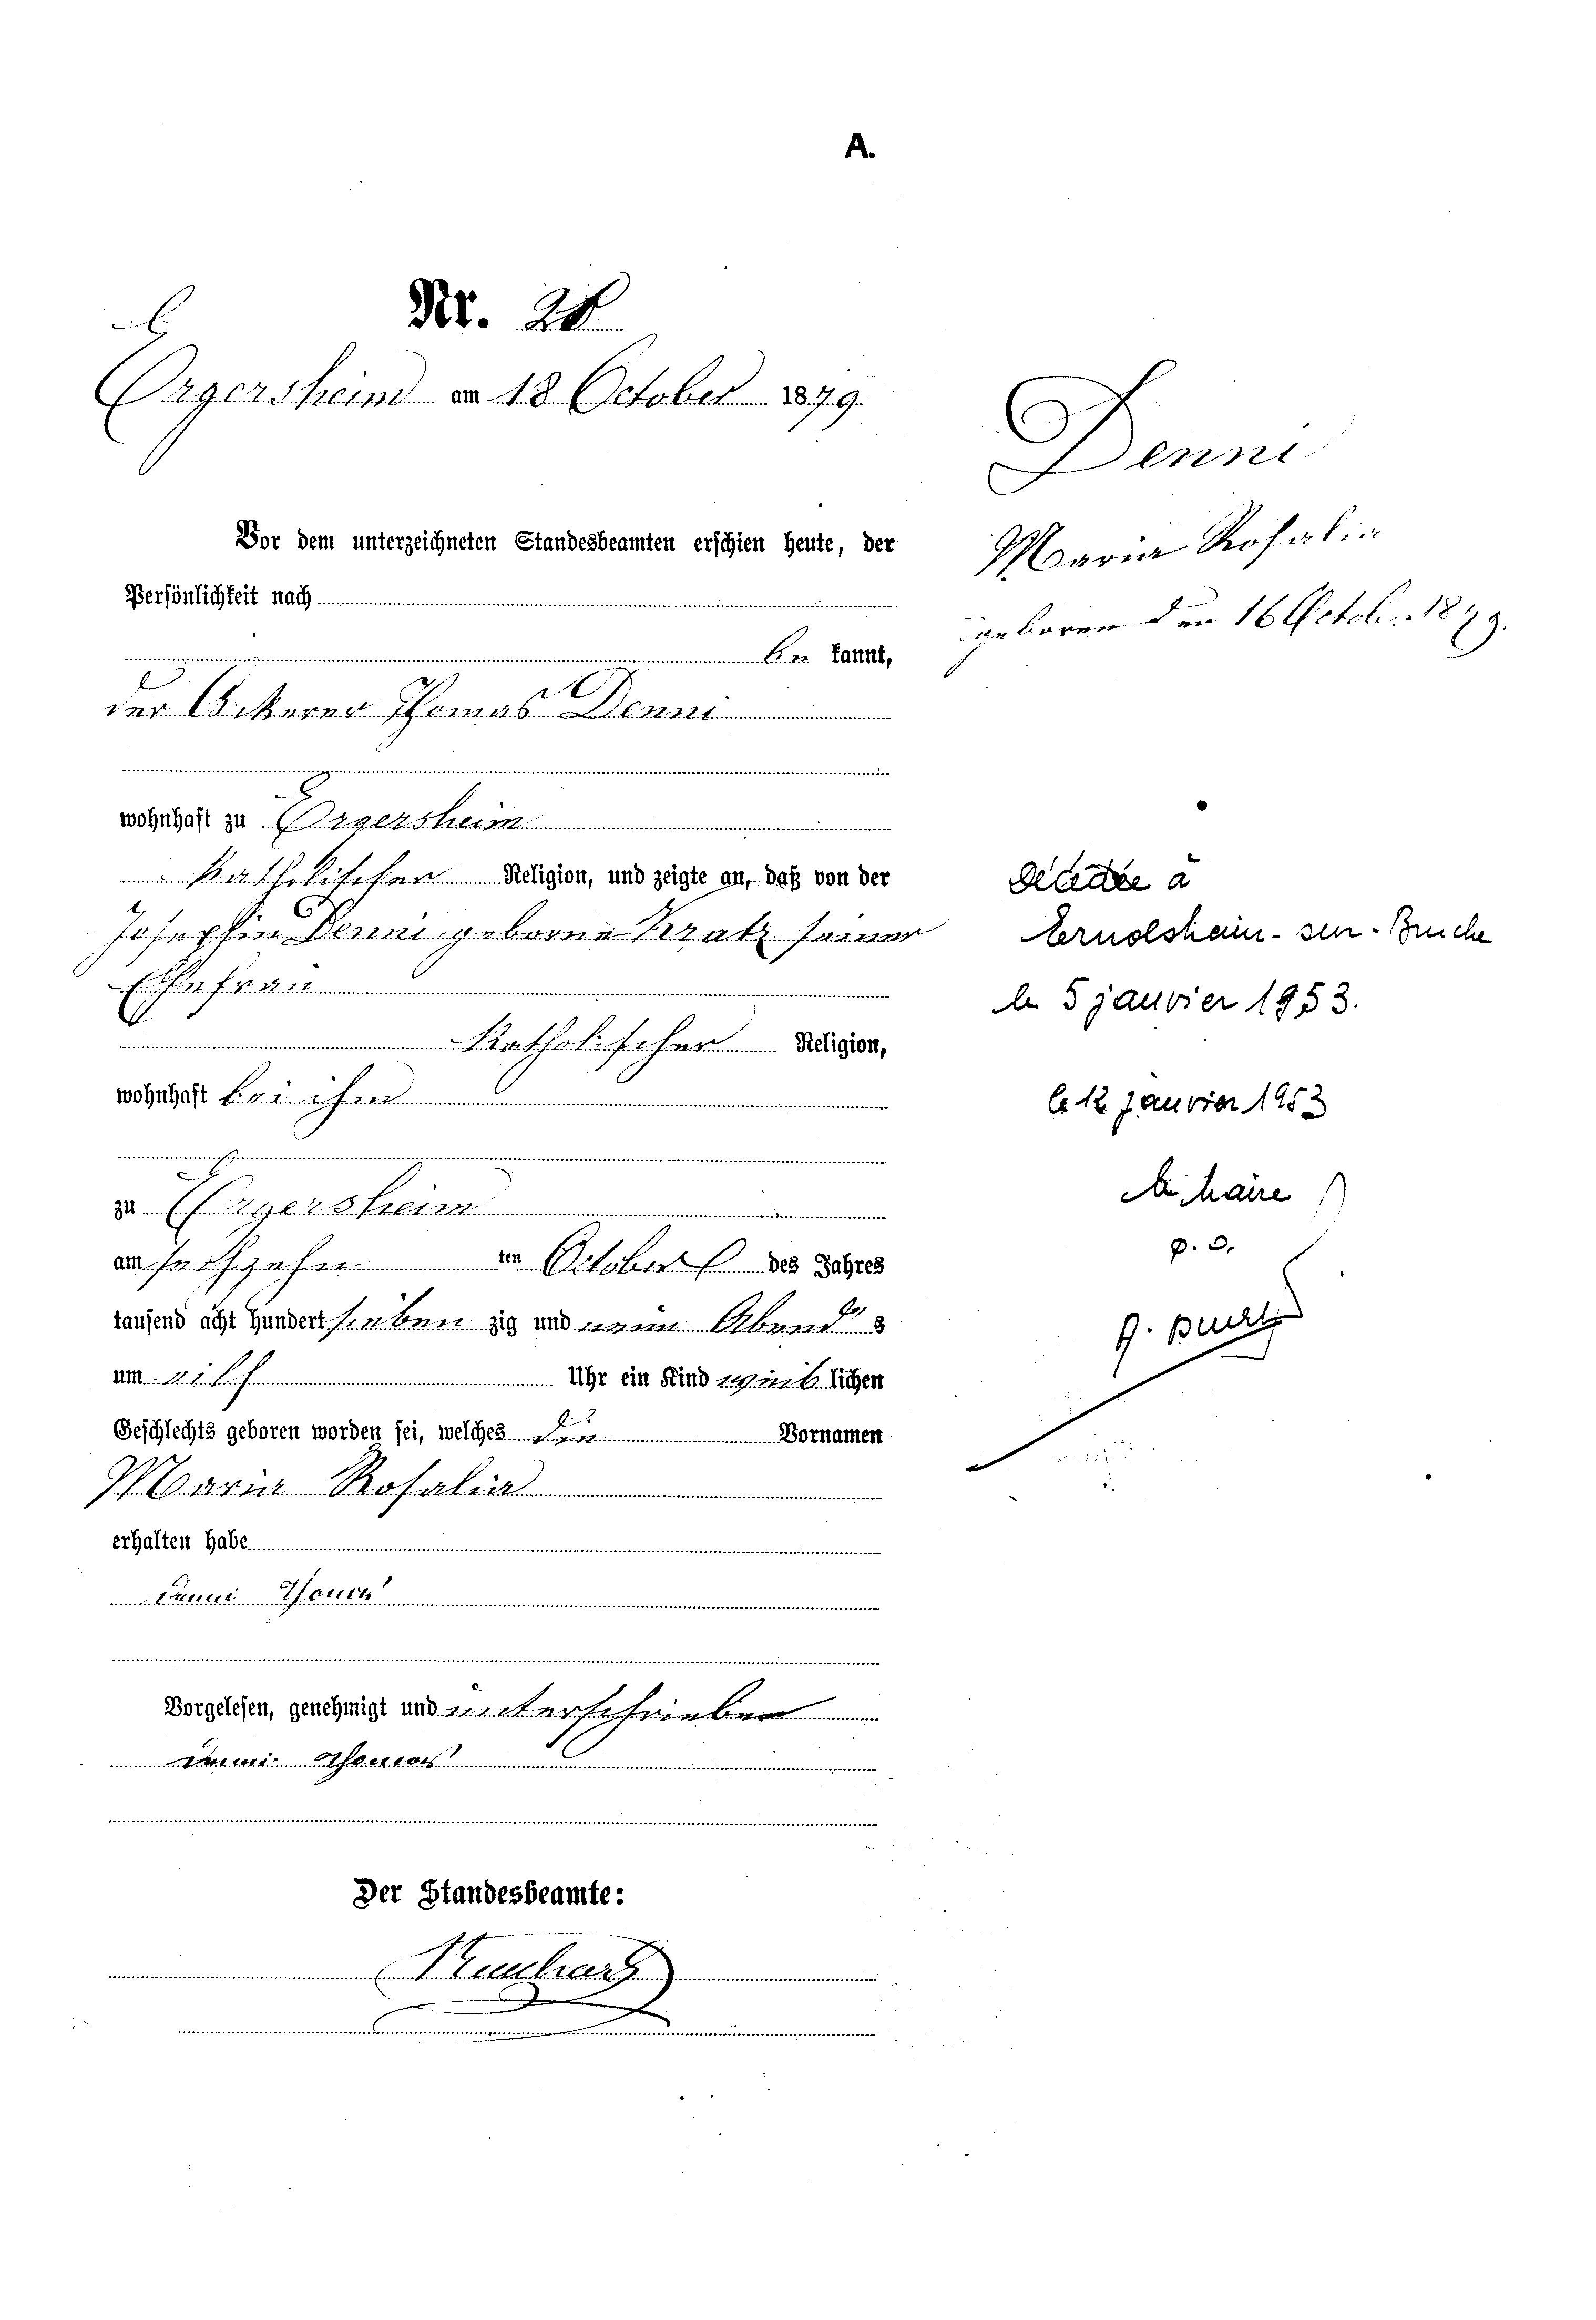 A.
Nr. 28
Ergersheim am 18 October 1879.
Vor dem unterzeichneten Standesbeamten erschien heute, der
Persönlichkeit nach
be kannt,
der Ackerer Thomas Denni
wohnhaft zu Ergersheim
katholischer Religion, und zeigte an, daß von der
Josephin Denni geborne Kratz seiner
Ehefrau
katholischer Religion,
wohnhaft bei ihm
zu Ergersheim
am sechzehn ten October des Jahres
tausend acht hundert sieben zig und neun Abend s
um eilf Uhr ein Kind weib lichen
Geschlechts geboren worden sei, welches die Vornamen
Maria Rosalia
erhalten habe
Denni Thomas
Vorgelesen, genehmigt und unterschrieben
Denni Thomas
Der Standesbeamte:
Denni
Maria Rosalia
geboren den 16 October 1879.
décédée à
Ernolsheim-sur-Bruche
le 5 janvier 1953.
le 12 janvier 1953
le Maire
p. o.